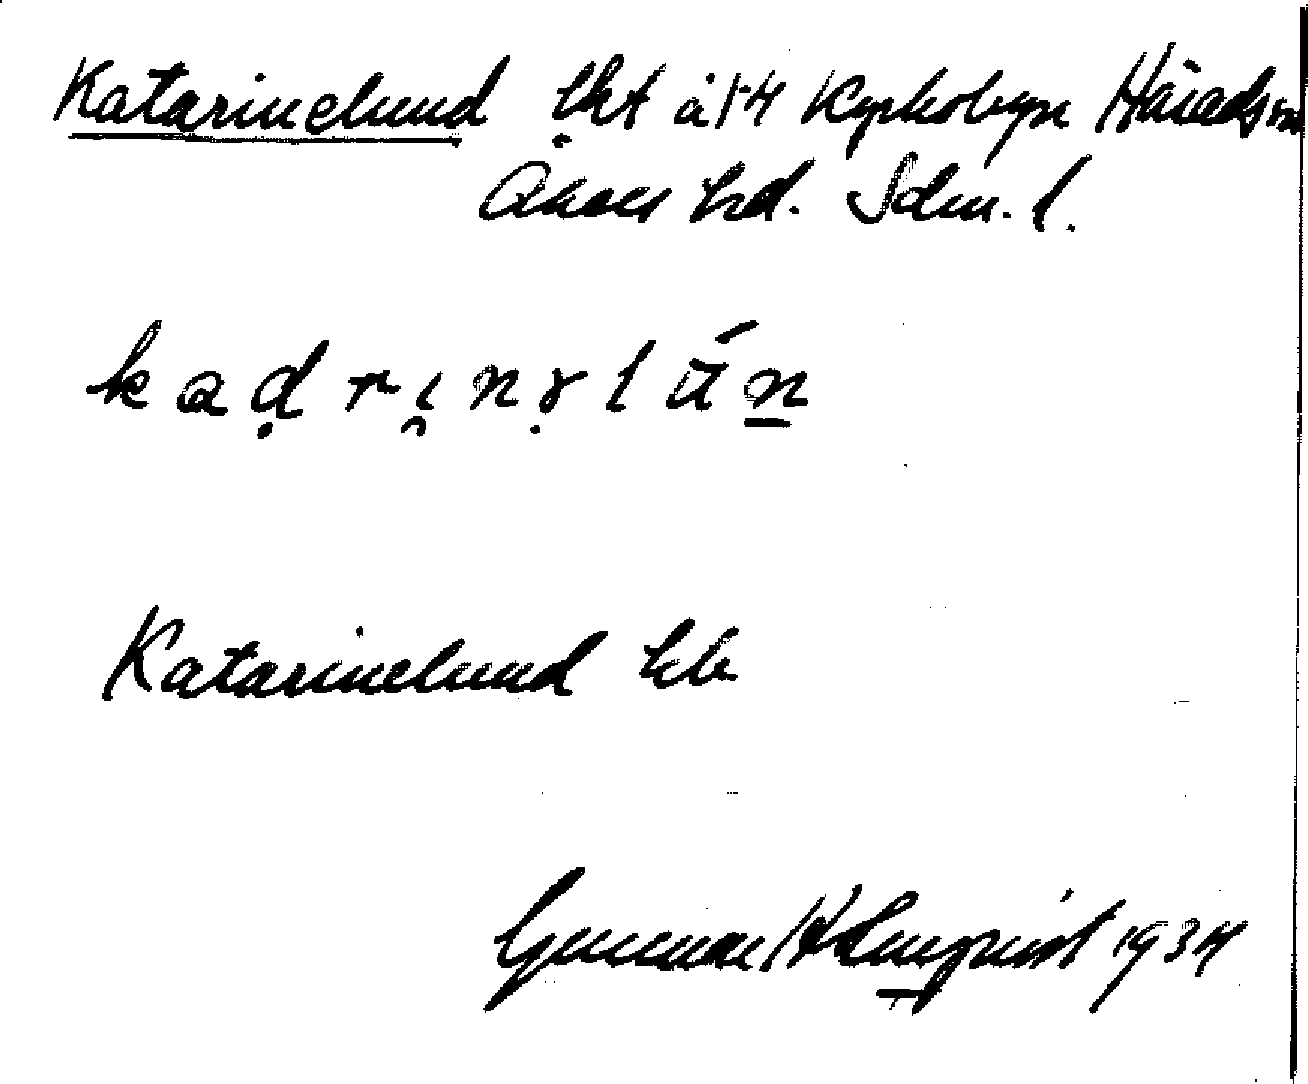 Katarinelund lht å 1:4 Kyrkobyn Härads sn
Åkers hd. Sdm. l.
kadrinɤlun
Katarinelund hb
Gunnar Holmqvist 1934